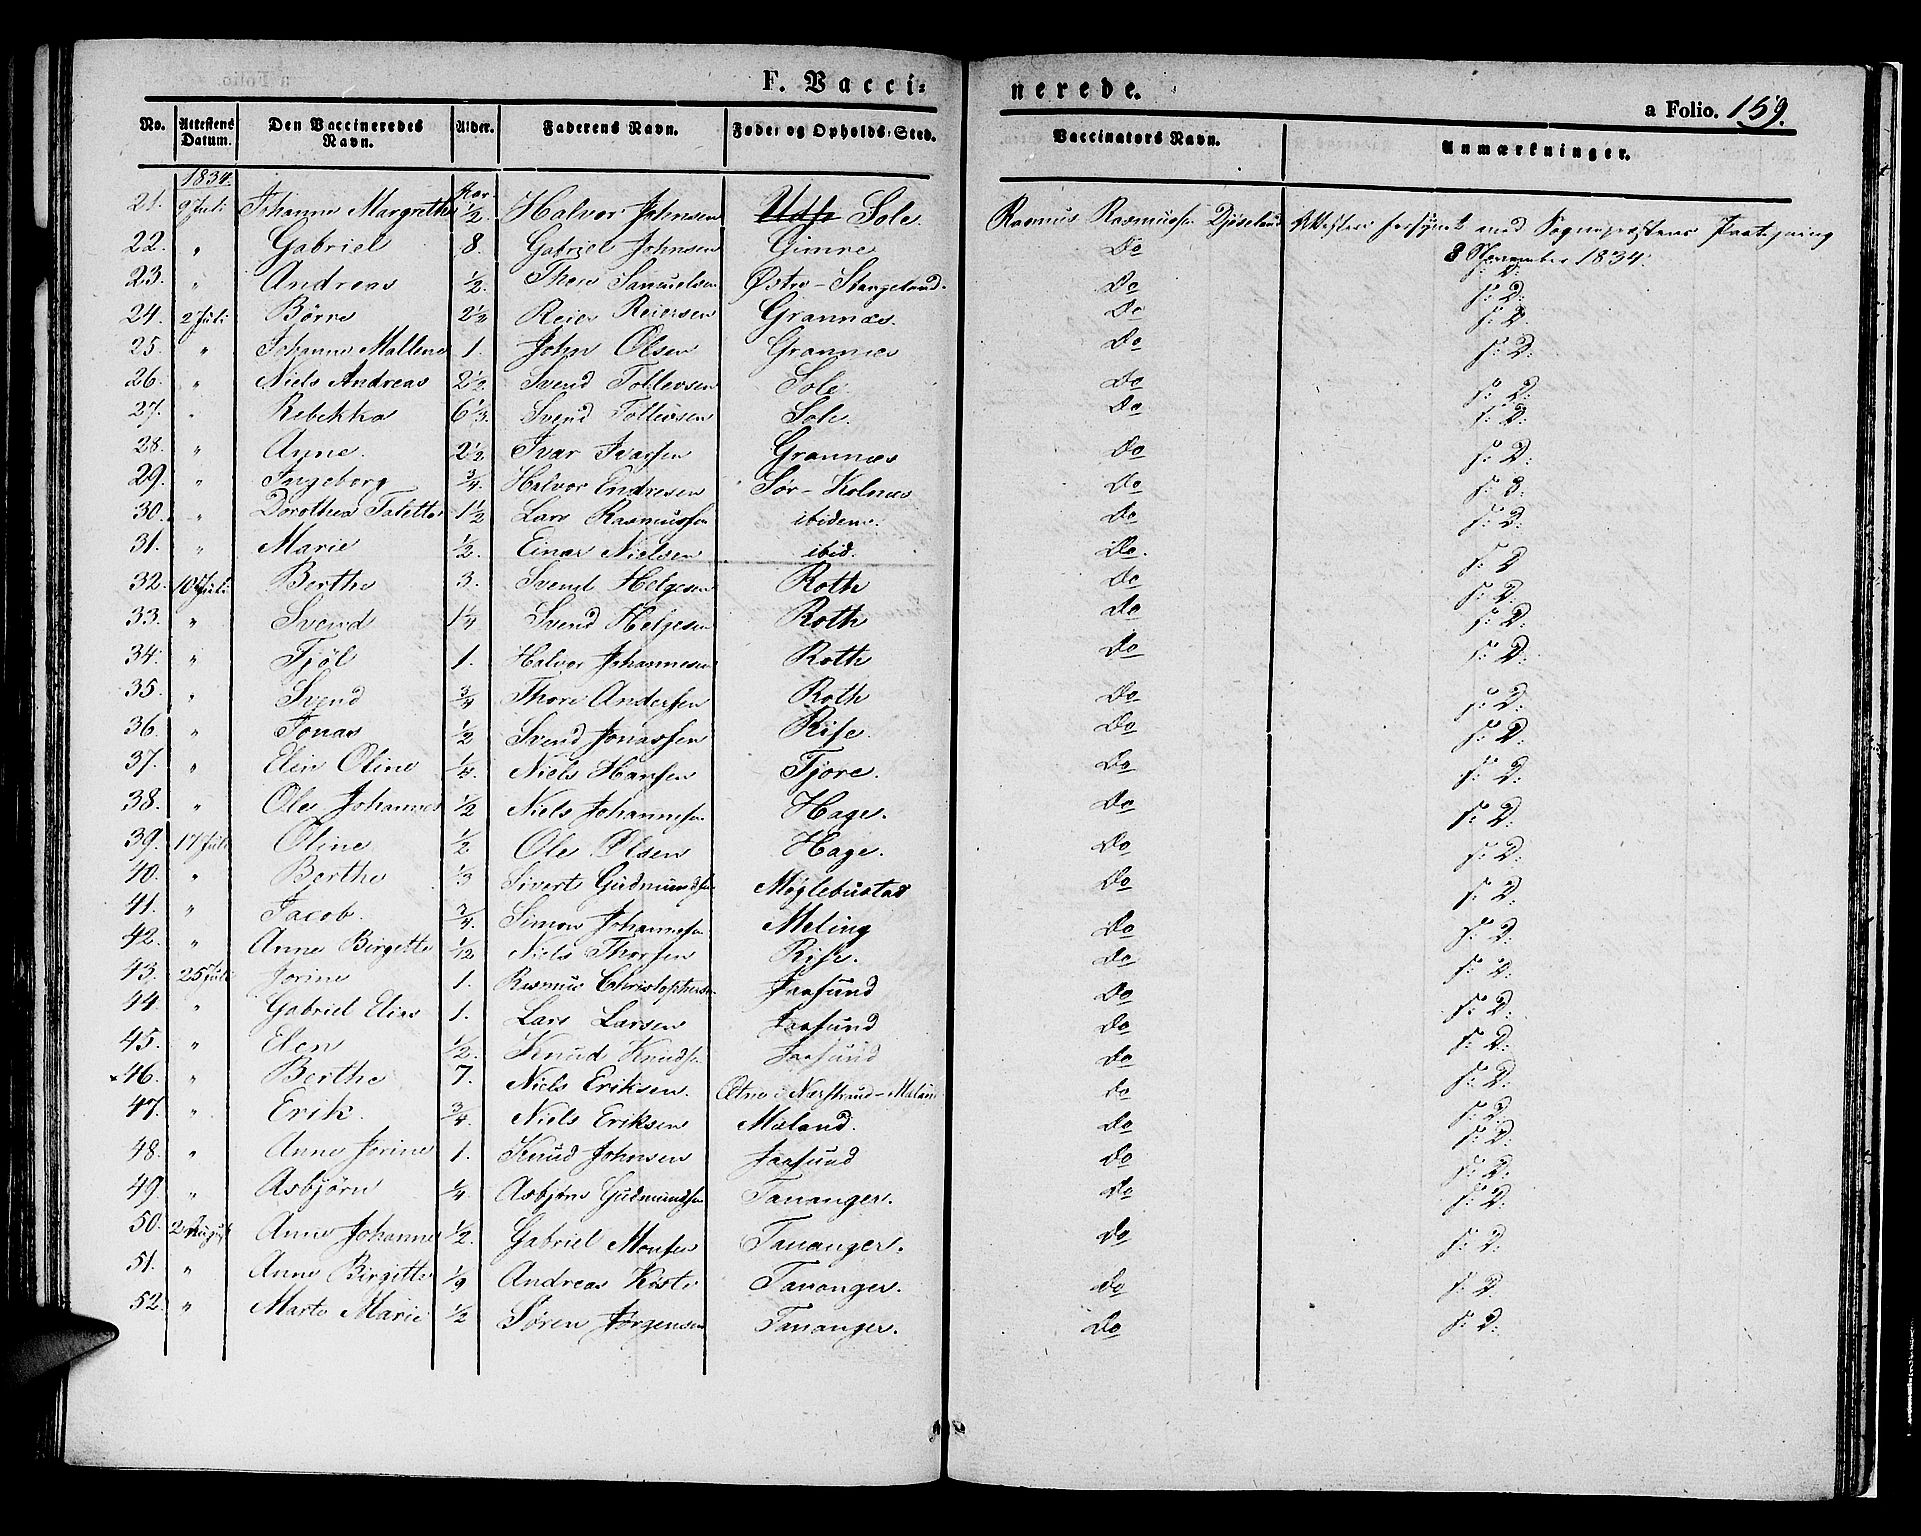 F. Vacci=
nerede.
a Folio. 159.
No. Attestens Datum. Den Vaccineredes Navn. Alder. Faderens Navn. Føde= og Opholds=Sted. Vaccinators Navn. Anmærkninger.
1834. Aar.
21. 9 Juli Johanne Margrethe 1/2. Halvor Johnsen Sole. Rasmus Rasmussen forsynet med Sognepræstens Paategning
22. " Gabriel 8. Gabriel Johnsen Gimre Do 8 November 1834.
23. " Andreas 1/2. Thore Samuelsen Østre-Stangeland. Do s: D:
24. 2 Juli Børre 2 1/2 Reier Reiersen Grannæs. Do s: D:
25. " Johanne Mallene 1. John Olsen Grannæs Do s: D:
26. " Niels Andreas 2 1/2. Svend Tollevsen Sole. Do s: D:
27. " Rebekka 6 1/3. Svend Tollevsen Sole. Do s: D:
28. " Anne. 2 1/2 Ivar Ivarsen Grannæs Do s: D:
29. " Ingeborg 3/4. Halvor Endresen Sør-Kolnæs Do s: D:
30. " Dorothea Taletta 1 1/2 Lars Rasmussen ibidem. Do s: D:
31. " Marie 1/2. Einar Nielsen ibid. Do. s: D
32. 10 Juli Berthe 3. Svend Helgesen Roth Do s: D:
33. " Svend 1/4 Svend Helgesen Roth Do s: D:
34. " Tjøl 1. Halvor Johannesen Roth Do s: D:
35. " Svend 3/4 Thore Andersen Roth Do s: D:
36. " Jonas 1/2 Svend Jonassen Rise. Do s: D:
37. " Elin Oline 1/4. Niels Hansen Tjore. Do s: D:
38. " Ole Johannes 1/2 Niels Johannesen Hage. Do s: D:
39. 17 Juli Oline 1/2 Ole Olsen Hage. Do s: D:
40. " Berthe 1/3 Sivert Gudmundsen Møglebustad Do s: D:
41. " Jacob. 3/4. Simon Johannesen Meling Do s: D:
42. " Anne Birgitte 1/12 Niels Thorsen Rise. Do s: D:
43. 25 Juli Jorine 1. Rasmus Christophersen Jaasund Do s: D:
44. " Gabriel Elias 1. Lars Larsen Jaasund Do s: D:
45. " Elen 1/2. Knud Knudsen Jaasund Do s: D:
×46. " Berthe 7. Niels Eriksen. Do s: D:
47. " Erik. 3/4. Niels Eriksen Mæland. Do s: D:
48. " Anne Jorine 1. Knud Johnsen Jaasund Do s: D:
49. " Asbjørn 1/4 Asbjørn Gudmundsen Tananger. Do s: D:
50. 2 August Anne Johanne 1/2. Gabriel Monsen Tananger. Do s: D:
51. " Anne Birgitte 1/9 Andreas Tananger. Do s: D
52. " Marte Marie 1/2 Søren Jørgensen Tananger. Do s: D: